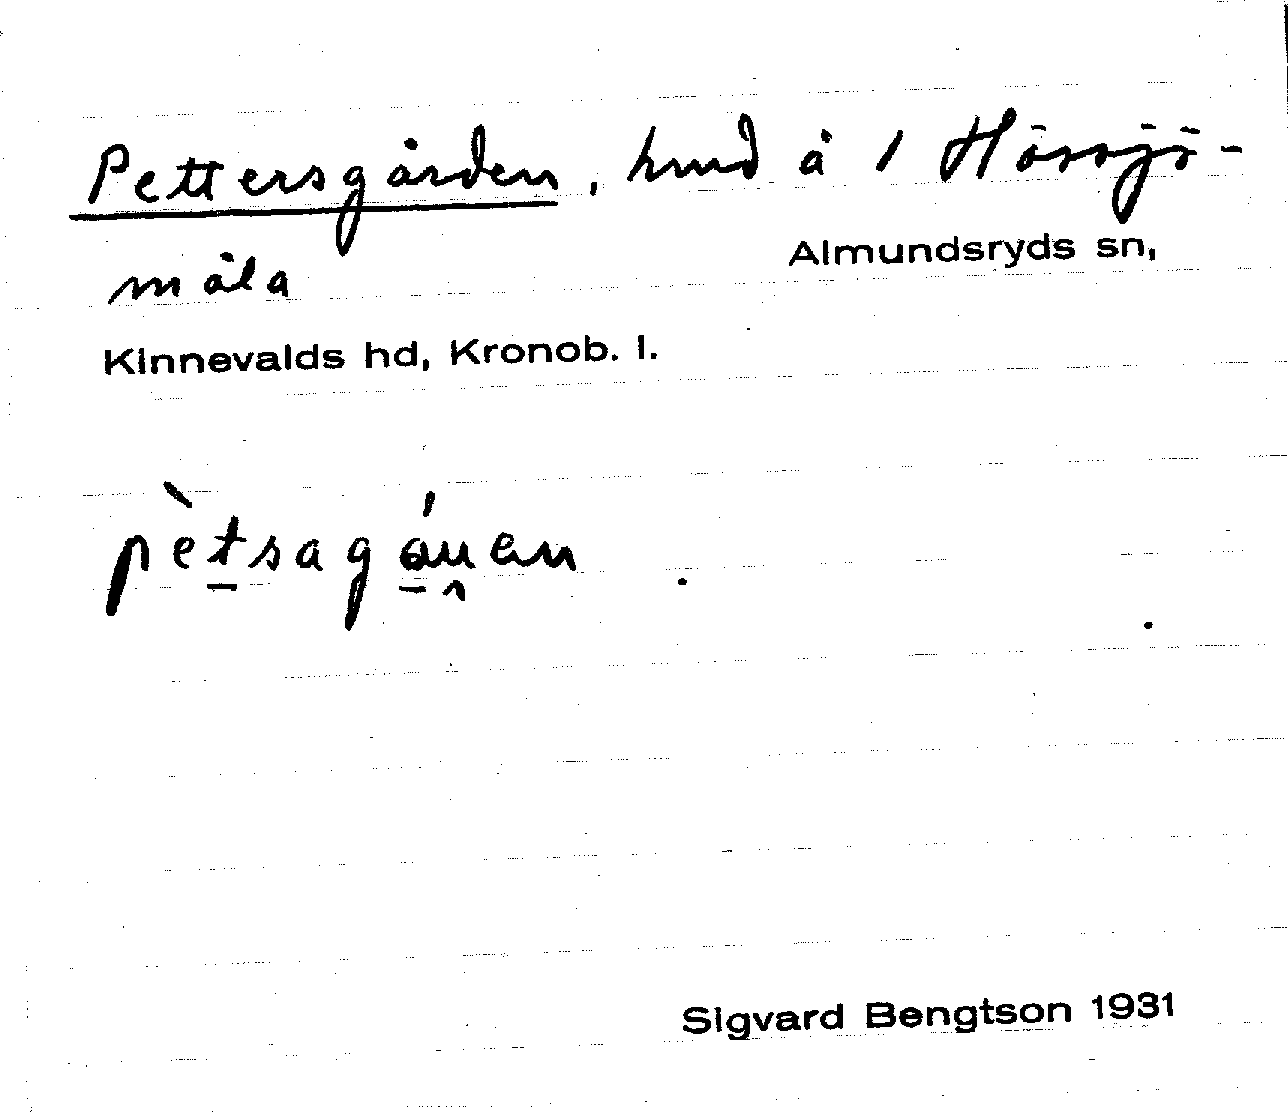 Pettersgården, hmd å 1 Hörsjö-
Almundsryds sn,
måla
Kinnevalds hd, Kronob. l.
pètsagáu̯en
Sigvard Bengtson 1931